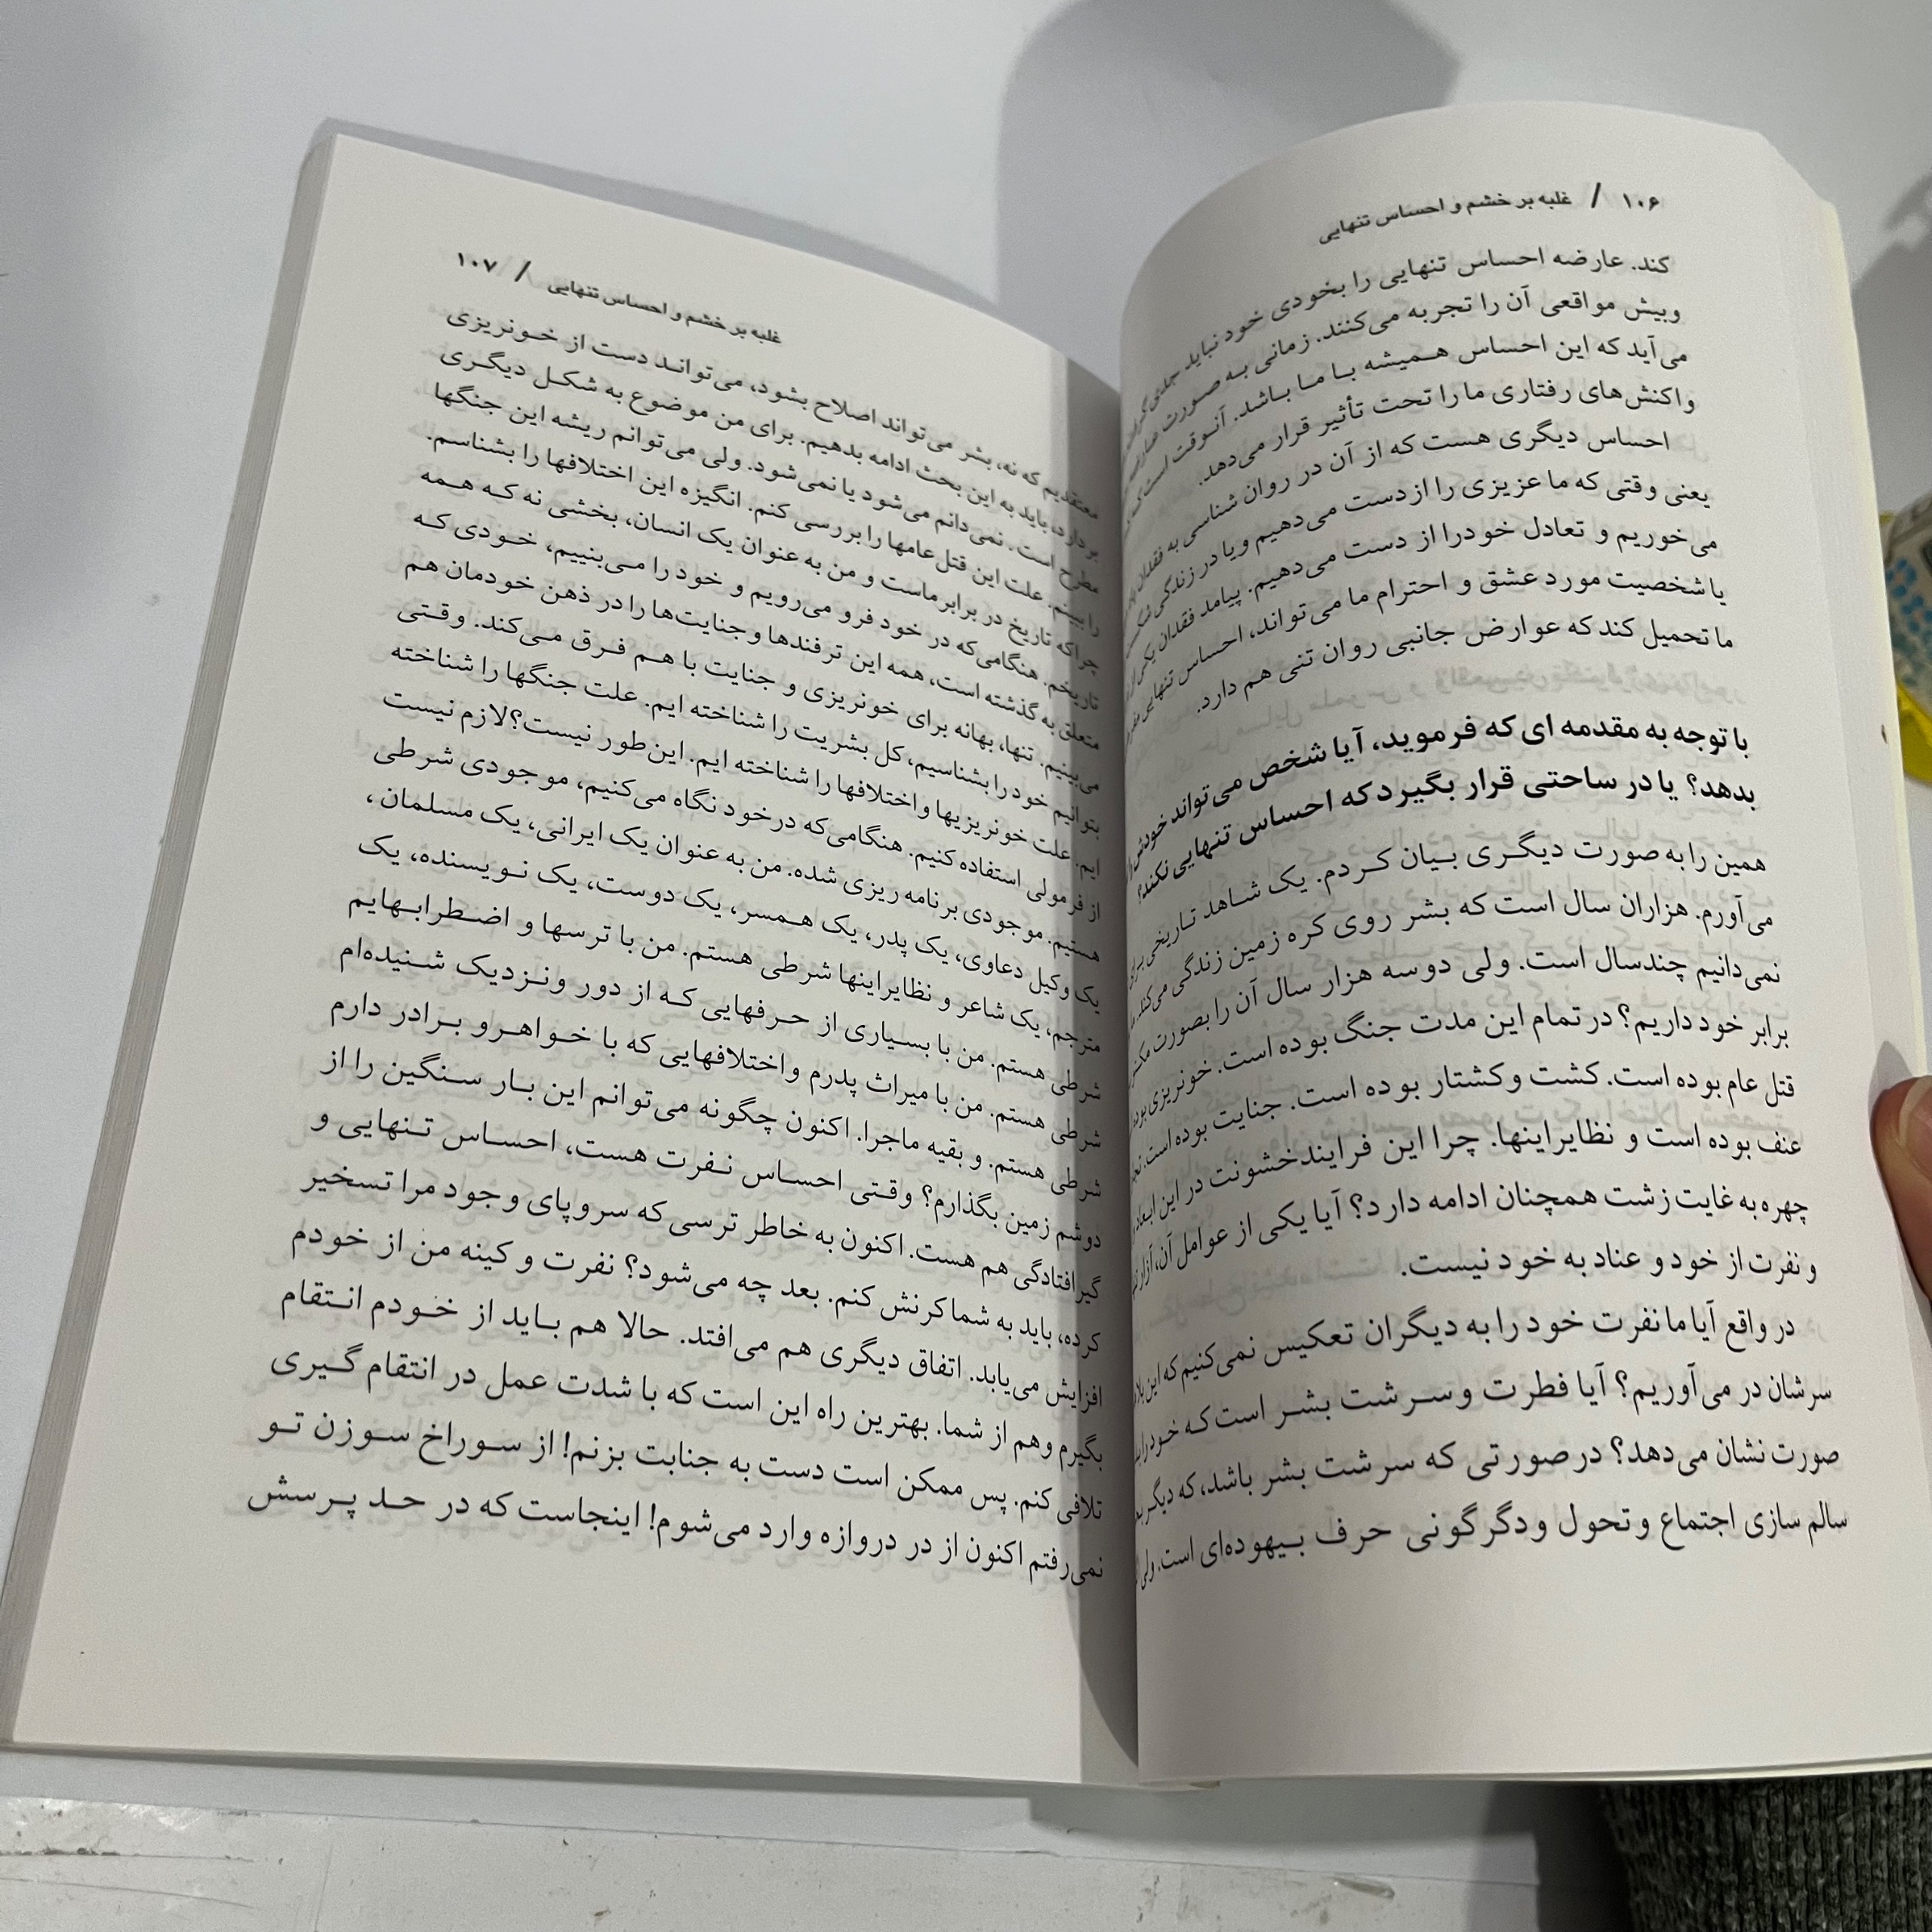 ۱۰۶ / غلبه بر خشم و احساس تنهایی
کند. عارضه احساس تنهایی را بخودی خود نباید جدی گرفت
وبیش مواقعی آن را تجربه می‌کنند. زمانی به صورت
می‌آید که این احساس همیشه با ما باشد. آنوقت است که
واکنش‌های رفتاری ما را تحت تأثیر قرار می‌دهد.
احساس دیگری هست که از آن در روان شناسی به فقدان
یعنی وقتی که ما عزیزی را از دست می‌دهیم ویا در زندگی
می‌خوریم و تعادل خودرا از دست می‌دهیم. پیامد فقدان یکی از
یا شخصیت مورد عشق و احترام ما می‌تواند، احساس تنهایی
ما تحمیل کند که عوارض جانبی روان تنی هم دارد.
با توجه به مقدمه ای که فرموید، آیا شخص می‌تواند خودش را
بدهد؟ یا در ساحتی قرار بگیرد که احساس تنهایی نکند؟
همین را به صورت دیگری بیان کردم. یک شاهد تاریخی برای
می‌آورم. هزاران سال است که بشر روی کره زمین زندگی می‌کند.
نمی‌دانیم چندسال است. ولی دوسه هزار سال آن را بصورت
برابر خود داریم؟ در تمام این مدت جنگ بوده است. خونریزی بوده
قتل عام بوده است. کشت وکشتار بوده است. جنایت بوده است.
عنف بوده است و نظایراینها. چرا این فرایندخشونت در این ابعاد
چهره به غایت زشت همچنان ادامه دارد؟ آیا یکی از عوامل آن، آزار
و نفرت از خود و عناد به خود نیست.
در واقع آیا ما نفرت خود را به دیگران تعکیس نمی‌کنیم که این بلا
سرشان در می‌آوریم؟ آیا فطرت وسرشت بشر است که خودرا
صورت نشان می‌دهد؟ درصورتی که سرشت بشر باشد، که دیگر
سالم سازی اجتماع و تحول و دگرگونی حرف بیهوده‌ای است. ولی
غلبه بر خشم و احساس تنهایی / ۱۰۷
معتقدیم که نه، بشر می‌تواند اصلاح بشود، می‌تواند دست از خونریزی
بردارد، باید به این بحث ادامه بدهیم. برای من موضوع به شکل دیگری
مطرح است. نمی‌دانم می‌شود یا نمی‌شود. ولی می‌توانم ریشه این جنگها
را ببینم. علت این قتل عامها را بررسی کنم. انگیزه این اختلافها را بشناسم.
چراکه تاریخ در برابر ماست و من به عنوان یک انسان، بخشی نه که همه
تاریخم. هنگامی‌که در خود فرو می‌رویم و خود را می‌بنییم، خودی که
متعلق به گذشته است، همه این ترفندها و جنایت‌ها را در ذهن خودمان هم
می‌بینیم. تنها، بهانه برای خونریزی و جنایت با هم فرق می‌کند. وقتی
بتوانیم خود را بشناسیم، کل بشریت را شناخته ایم. علت جنگها را شناخته
ایم. علت خونریزیها و اختلافها را شناخته ایم. این‌طور نیست؟ لازم نیست
از فرمولی استفاده کنیم. هنگامی‌که در خود نگاه می‌کنیم، موجودی شرطی
هستیم. موجودی برنامه ریزی شده. من به عنوان یک ایرانی، یک مسلمان،
یک وکیل دعاوی، یک پدر، یک همسر، یک دوست، یک نویسنده، یک
مترجم، یک شاعر و نظایراینها شرطی هستم. من با ترسها و اضطرابهایم
شرطی هستم. من با بسیاری از حرفهایی که از دور ونزدیک شنیده‌ام
شرطی هستم. من با میراث پدرم واختلافهایی که با خواهرو برادر دارم
شرطی هستم. و بقیه ماجرا. اکنون چگونه می‌توانم این بار سنگین را از
دوشم زمین بگذارم؟ وقتی احساس نفرت هست، احساس تنهایی و
گیرافتادگی هم هست. اکنون به خاطر ترسی که سروپای وجود مرا تسخیر
کرده، باید به شما کرنش کنم. بعد چه می‌شود؟ نفرت و کینه من از خودم
افزایش می‌یابد. اتفاق دیگری هم می‌افتد. حالا هم باید از خودم انتقام
بگیرم وهم از شما. بهترین راه این است که با شدت عمل در انتقام گیری
تلافی کنم. پس ممکن است دست به جنابت بزنم! از سوراخ سوزن تو
نمی‌رفتم اکنون از در دروازه وارد می‌شوم! اینجاست که در حد پرسش